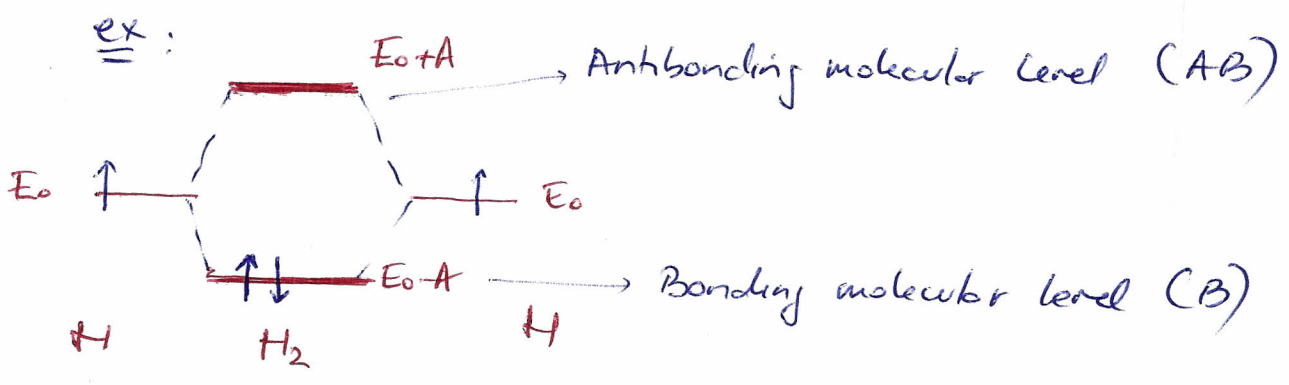 ex :
E₀+A
Antibonding molecular level (AB)
E₀
E₀
E₀-A
Bonding molecular level (B)
H
H₂
H